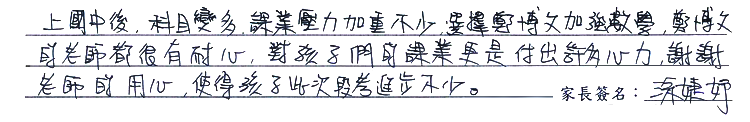 上國中後,科目變多,課業壓力加重不少,選擇鄭博文加強數學,鄭博文
的老師都很有耐心,對孩子們的課業更是付出許多心力,謝謝
老師的用心,使得孩子此次段考進步不少。 家長簽名:涂婕妤